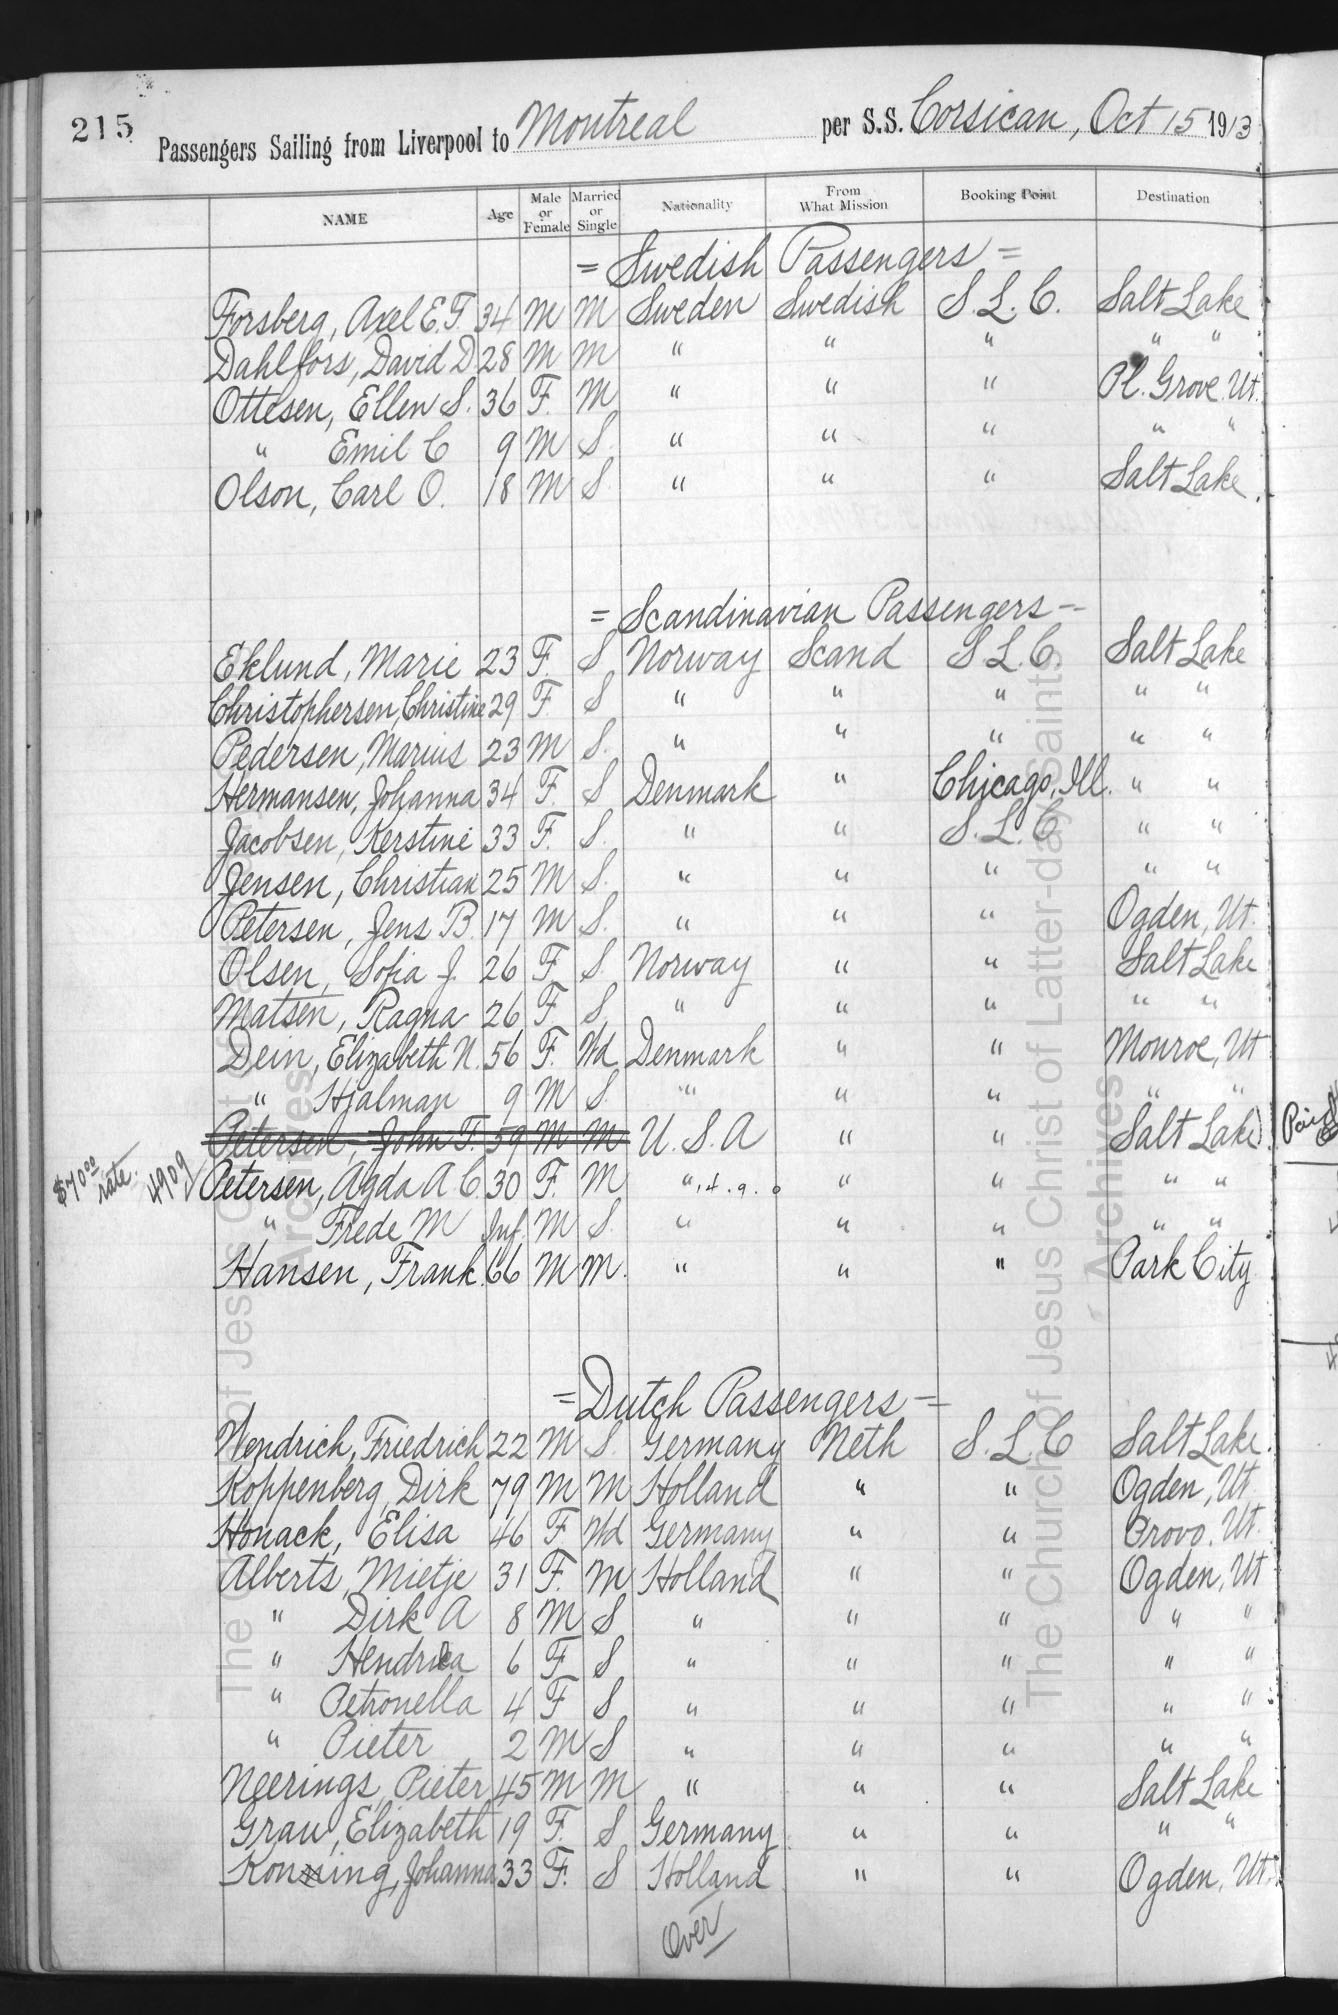 215
Passengers Sailing from Liverpool to Montreal per S.S. Corsican, Oct 15 1913
NAME Age Male or Female Married or Single Nationality From What Mission Booking Point Destination
= Swedish Passengers =
Forsberg, Axel E.T. 34 M M Sweden Swedish S.L.C. Salt Lake
Dahlfors, David D 28 M M " " " " "
Ottesen, Ellen S. 36 F. M " " " Pl. Grove Ut.
" Emil C 9 M S. " " " " "
Olson, Carl O. 18 M S. " " " Salt Lake
= Scandinavian Passengers =
Eklund, Marie 23 F. S Norway Scand S L. C. Salt Lake
Christophersen, Christine 29 F. S " " " " "
Pedersen, Marius 23 M S. " " " " "
Hermansen, Johanna 34 F. S Denmark " Chicago, Ill. " "
Jacobsen, Kerstine 33 F. S. " " S. L. C " "
Jensen, Christian 25 M S. " " " " "
Petersen, Jens B. 17 M S. " " " Ogden, Ut.
Olsen, Sofia J. 26 F. S. Norway " " Salt Lake
Matsen, Ragna 26 F. S. " " " " "
Dein, Elizabeth N. 56 F. Wd Denmark " " Monroe, Ut
" Hjalmar 9 M S. " " " " "
Petersen, John F. 59 M M U.S.A " " Salt Lake Paid
$70.00 rate. 4909 Petersen, Agda A C. 30 F. M " 14.9.0 " " " "
" Frede M Inf. M S. " " " " "
Hansen, Frank 66 M M. " " " Park City
= Dutch Passengers =
Wendrich, Friedrich 22 M S. Germany Neth S. L. C Salt Lake.
Koppenberg, Dirk 79 M M Holland " " Ogden, Ut.
Honack, Elisa 46 F. Wd Germany " " Provo. Ut.
Alberts, Mietje 31 F. M Holland " " Ogden, Ut
" Dirk A 8 M S " " " " "
" Hendrica 6 F S " " " " "
" Petronella 4 F S " " " " "
" Pieter 2 M S " " " " "
Neerings, Pieter 45 M M " " " Salt Lake
Grau, Elizabeth 19 F. S Germany " " " "
Konning, Johanna 33 F. S Holland " " Ogden, Ut.
Over
The Church of Jesus Christ of Latter-day Saints
Archives